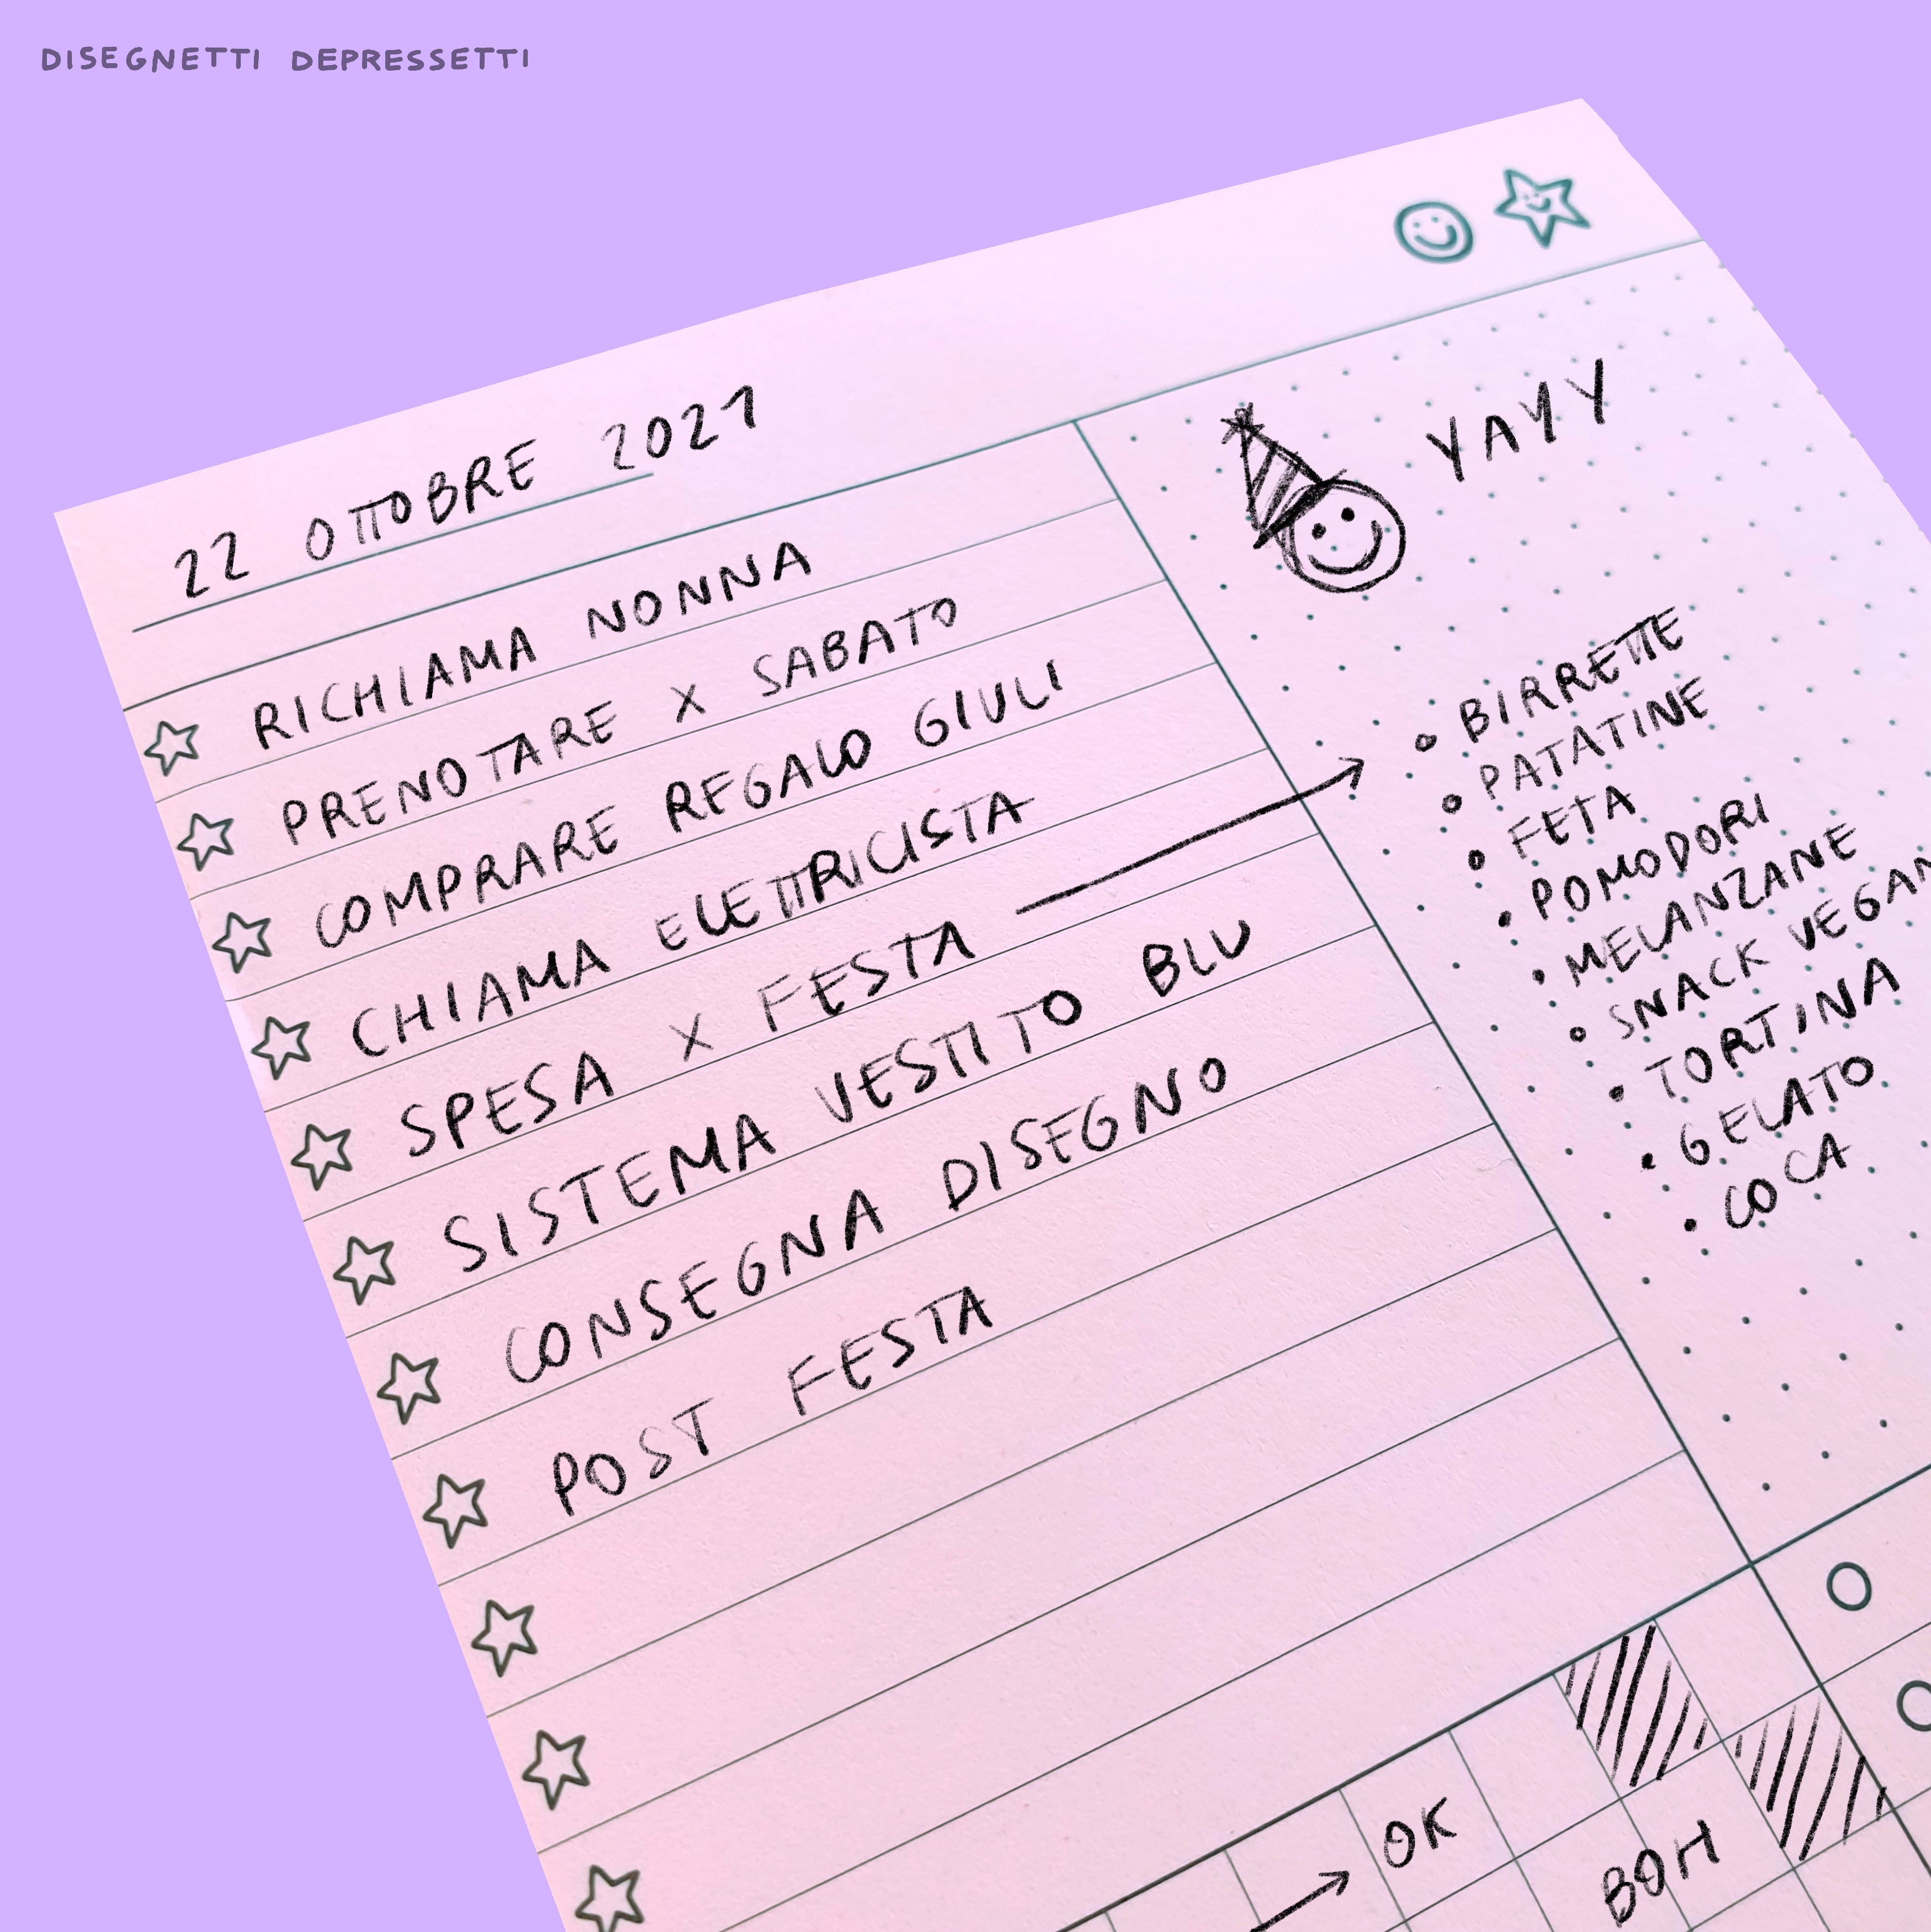 DISEGNETTI DEPRESSETTI
22 OTTOBRE 2021
RICHIAMA NONNA
PRENOTARE X SABATO
COMPRARE REGALO GIULI
CHIAMA ELETTRICISTA
SPESA X FESTA
SISTEMA VESTITO BLU
CONSEGNA DISEGNO
POST FESTA
YAYY
BIRRETTE
PATATINE
FETA
POMODORI
MELANZANE
SNACK VEGAN
TORTINA
GELATO
COCA
OK
BOH